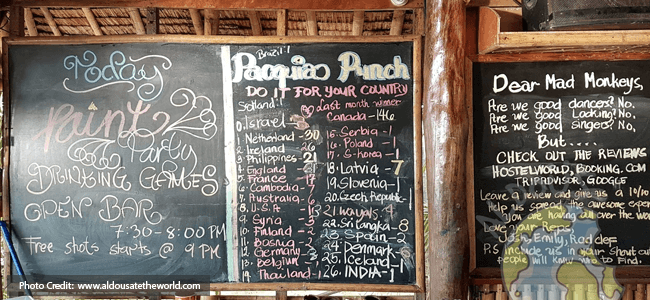 Today
Paint
Party
DRINKING GAMES
OPEN BAR
7:30-8:00 PM
Free shots starts @ 9 PM
Brazil-1
Pacquiao Punch
DO IT FOR YOUR COUNTRY
Scotland-
Last month winner
Canada-146
0. Israel
1. Netherland-30
2. Ireland-26
3. Philippines-21
4. England
5. France-17
6. Cambodia-
7. Australia-6
8. U.S.A
9. Syria-5
10. Finland-2
11. Bosnia-2
12. Germany-
13. Belgium
14. Thailand-1
15. Serbia-1
16. Poland-1
17. S-korea-1
18. Latvia-7
19. Slovenia-1
20. Czech Republic-
21. Wayals-
22. Sri Langka-8
23. Spain-2
24. Denmark
25. Iceland-1
26. INDIA-1
Dear Mad Monkeys,
Are we good dancers? No.
Are we Good Looking? No.
Are we good Singers? No.
But....
CHECK OUT THE REVIEWS
HOSTELWORLD, BOOKING.COM
TRIPADVISOR, GOOGLE
Leave a review and give us a 10/10
Help us spread the awesome
You are having all over the
Love yours,
Josh, Emily, Raddet
P.S include us in your Shout out
people will know who to Find.
Photo Credit: www.aldousatetheworld.com